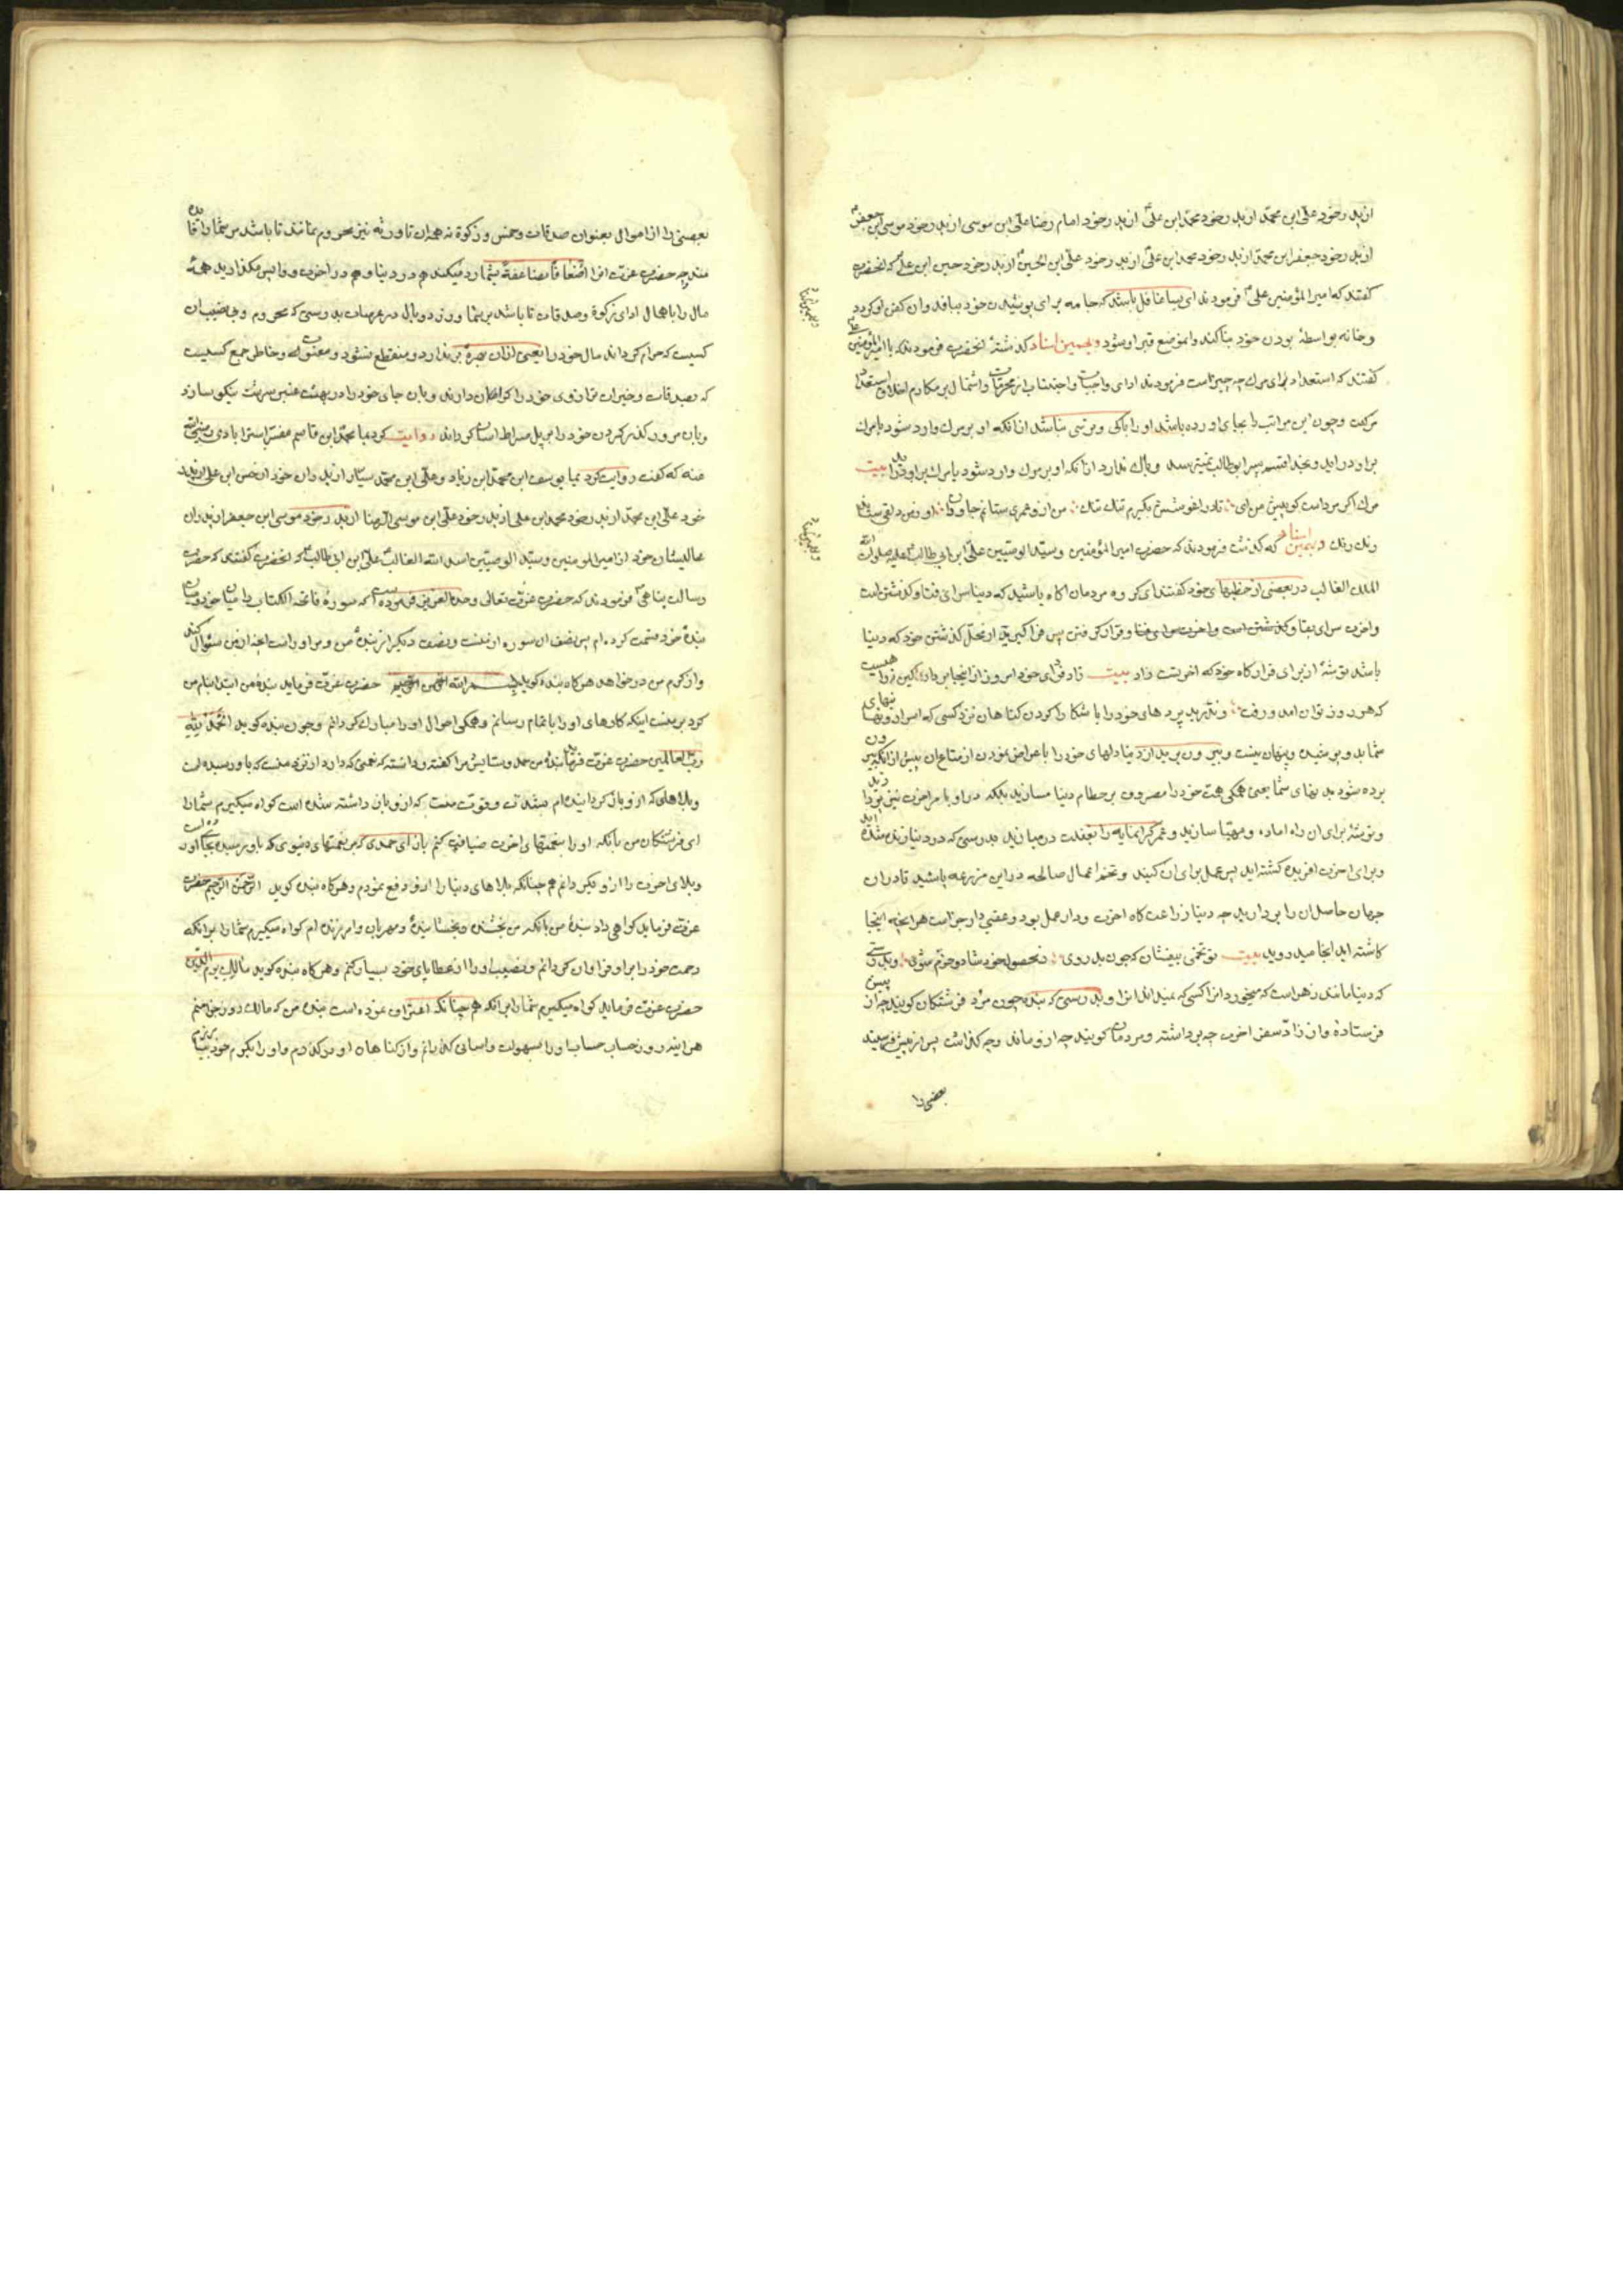 از پدر خود علی ابن محمد از پدر خود محمد ابن علی از پدر خود امام رضا علی ابن موسی از پدر خود موسی ابن جعفر
از پدر خود جعفر ابن محمد از پدر خود محمد ابن علی از پدر خود علی ابن الحسین از پدر خود حسین ابن علی که انحضرت
کفتند که امیر المؤمنین علی فرمودند ای بسا غافل باشد که جامه برای پوشیدن خود ببافد وان کفن او کردد
وخانه بواسطه بودن خود بنا کند وانموضع قبر او شود وبهمین اسناد کذشته انحضرت فرمودند که با امیر المؤمنین
کفتند که استعداد برای مرک چه چیز است فرمودند ادای واجبات واجتناب از محرمات واشتمال بر مکارم اخلاق استعداد
مرکست وچون این مراتب را بجای اورده باشد او را باکی وترسی نباشد ازانکه او بر مرک وارد شود یا مرک
براو در اید وبخدا قسم پسر ابوطالب نمیترسد وباک ندارد ازانکه او بر مرک وارد شود یا مرک براو در اید بیت
مرک اکر مرد است کو پیش من ای تا در اغوشش بکیرم تنک تنک من ازو عمری ستانم جاودان او ز من دلقی ستاند
رنک رنک وبهمین اسناد که کذشت فرمودند که حضرت امیر المؤمنین وسید الوصیین علی ابن ابی طالب علیه صلوات الله
الملک الغالب در بعضی از خطبهای خود کفتند ای کروه مردمان اکاه باشید که دنیا سرای فنا وکذشتن است
واخرت سرای بقا وکذشتن است واخرت سرای فنا وقرار کرفتن پس فرا کیرید از محل کذشتن خود که دنیا
باشد توشهٔ از برای قرارکاه خود که اخرتست زاد بیت زاد فردای خود امروز از اینجا بردار کین نه راهیست
که هر روز توان امد ورفت وندرید پرد های خود را با شکارا کردن کناهان نزد کسی که اسرار ونهانیهای
شما بدو پوشیده وپنهان نیست وبیرون برید از دنیا دلهای خود را با عراض نمودن از متاع ان پیش ازانکه بیرون
برده شود بدنهای شما یعنی همکی همت خود را مصروف بر حطام دنیا مسازید بلکه در او با مر اخرت نیز پردازید
وتوشهٔ برای ان راه اماده ومهیا سازید وعمر کرانمایه را بغفلت درمبازید بدرستی که در دنیا زنده شده اید
وبرای اخرت افریده کشته اید پس عمل برای ان کنید وتخم اعمال صالحه در این مزرعه پاشید تا در ان
جهان حاصل ان را بردارید چه دنیا زراعت کاه اخرت ودار عمل بود وعقبی دار جزاست هرانچه اینجا
کاشته اید انجا میدروید بیت تو تخمی بیفشان که چون بدروی ز محصول خود شاد وخرم شوی وبدرستی
که دنیا مانند زهر است که میخورد انرا کسی که نمیداند انرا وبدرستی که بنده چون مرد فرشتکان کویند چه از پیش
فرستاده وازان زاد سفر اخرت چه برداشته ومردمان کویند چه ازو ماند وچه کذاشت پس از پیش فرستید
بعضی را
بعضی را از اموال بعنوان صدقات وخمس وزکوة نه همه ان تا ورثه نیز محروم نمانند تا باشد مر شما را فایده
مند چه حضرت عزت انرا اضعافا مضاعفة بشما رد میکند هم در دنیا وهم در اخرت وواپس مکذارید همه
مال را با همال ادای زکوة وصدقات تا باشد بر شما وزر ووبال در عرصات بدرستی که محروم وبی نصیب ان
کسیست که حرام کرداند مال خود را یعنی ازان بهره بر ندارد ومنقطع نشود ومغبون له وخاطر جمع کسیست
که بصدقات وخیرات ترازوی خود را کران دارند وبان جای خود را در بهشت عنبر سرشت نیکو سازد
وبان مرور کذر کردن خود را بر پل صراط اسان کرداند روایت کرد مبا محمد ابن قاسم مفسر استرابادی رضی الله
عنه که کفت روایت کرد بما یوسف ابن محمد ابن زیاد وعلی ابن محمد سیار از پدران خود از حسن ابن علی از پدر
خود علی ابن محمد از پدر خود محمد ابن علی از پدر خود علی ابن موسی الرضا از پدر خود موسی ابن جعفر از پدران
عالیشان خود از امیر المومنین وسید الوصیین اسد الله الغالب علی ابن ابی طالب که انحضرت کفتند که حضرت
رسالت پناهی فرمودند که حضرت عزت تعالی وحده العزیز فرموده است که سوره فاتحة الکتاب را میان خود ومیان
بندهٔ خود قسمت کرده ام پس نصف ان سوره از منست ونصف دیکر از بندهٔ من ومر او راست انچه از من سؤال کند
واز کرم من در خواهد هرکاه بنده کوید بسم الله الرحمن الرحیم حضرت عزت فرماید بندهٔ من ابتدا بنام من
کرد بر منست اینکه کارهای او را باتمام رسانم وهمکی احوال او را مبارک کردانم وچون بنده کوید الحمد لله
رب العالمین حضرت عزت فرماید بندهٔ من حمد وستایش مرا کفته ودانسته که نعمتی که دارد از نزد منست که باو رسیده است
وبلاهائی که ازو باز کردانیده ام بشدت وقوت منست که ازو باز داشته شده است کواه میکیرم شما را
ای فرشتکان من بانکه او را بنعمتهای اخرت ضیافت کنم بازای حمدی که بر نعمتهای دنیوی که باو رسیده بجا اورده است
وبلای اخرت را ازو بکردانم هم چنانکه بلاهای دنیا را ازو دفع نمودم وهرکاه بنده کوید الرحمن الرحیم حضرت
عزت فرماید کواهی داد بندهٔ من بانکه من بخشنده وبخشاینده ومهربان وامرزنده ام کواه میکیرم شما را برانکه
رحمت خود را بر او فراوان کردانم ونصیب او را از عطایای خود بسیار کنم وهرکاه بنده کوید مالک یوم الدین
حضرت عزت فرماید کواه میکیرم شما را برانکه هم چنانکه اعتراف نموده است بنده من که مالک روز جزا منم
هر اینه در روز حساب حساب او را بسهولت واسانی کذرانم واز کناهان او درکذرم واو را بکرم خود بیامرزم